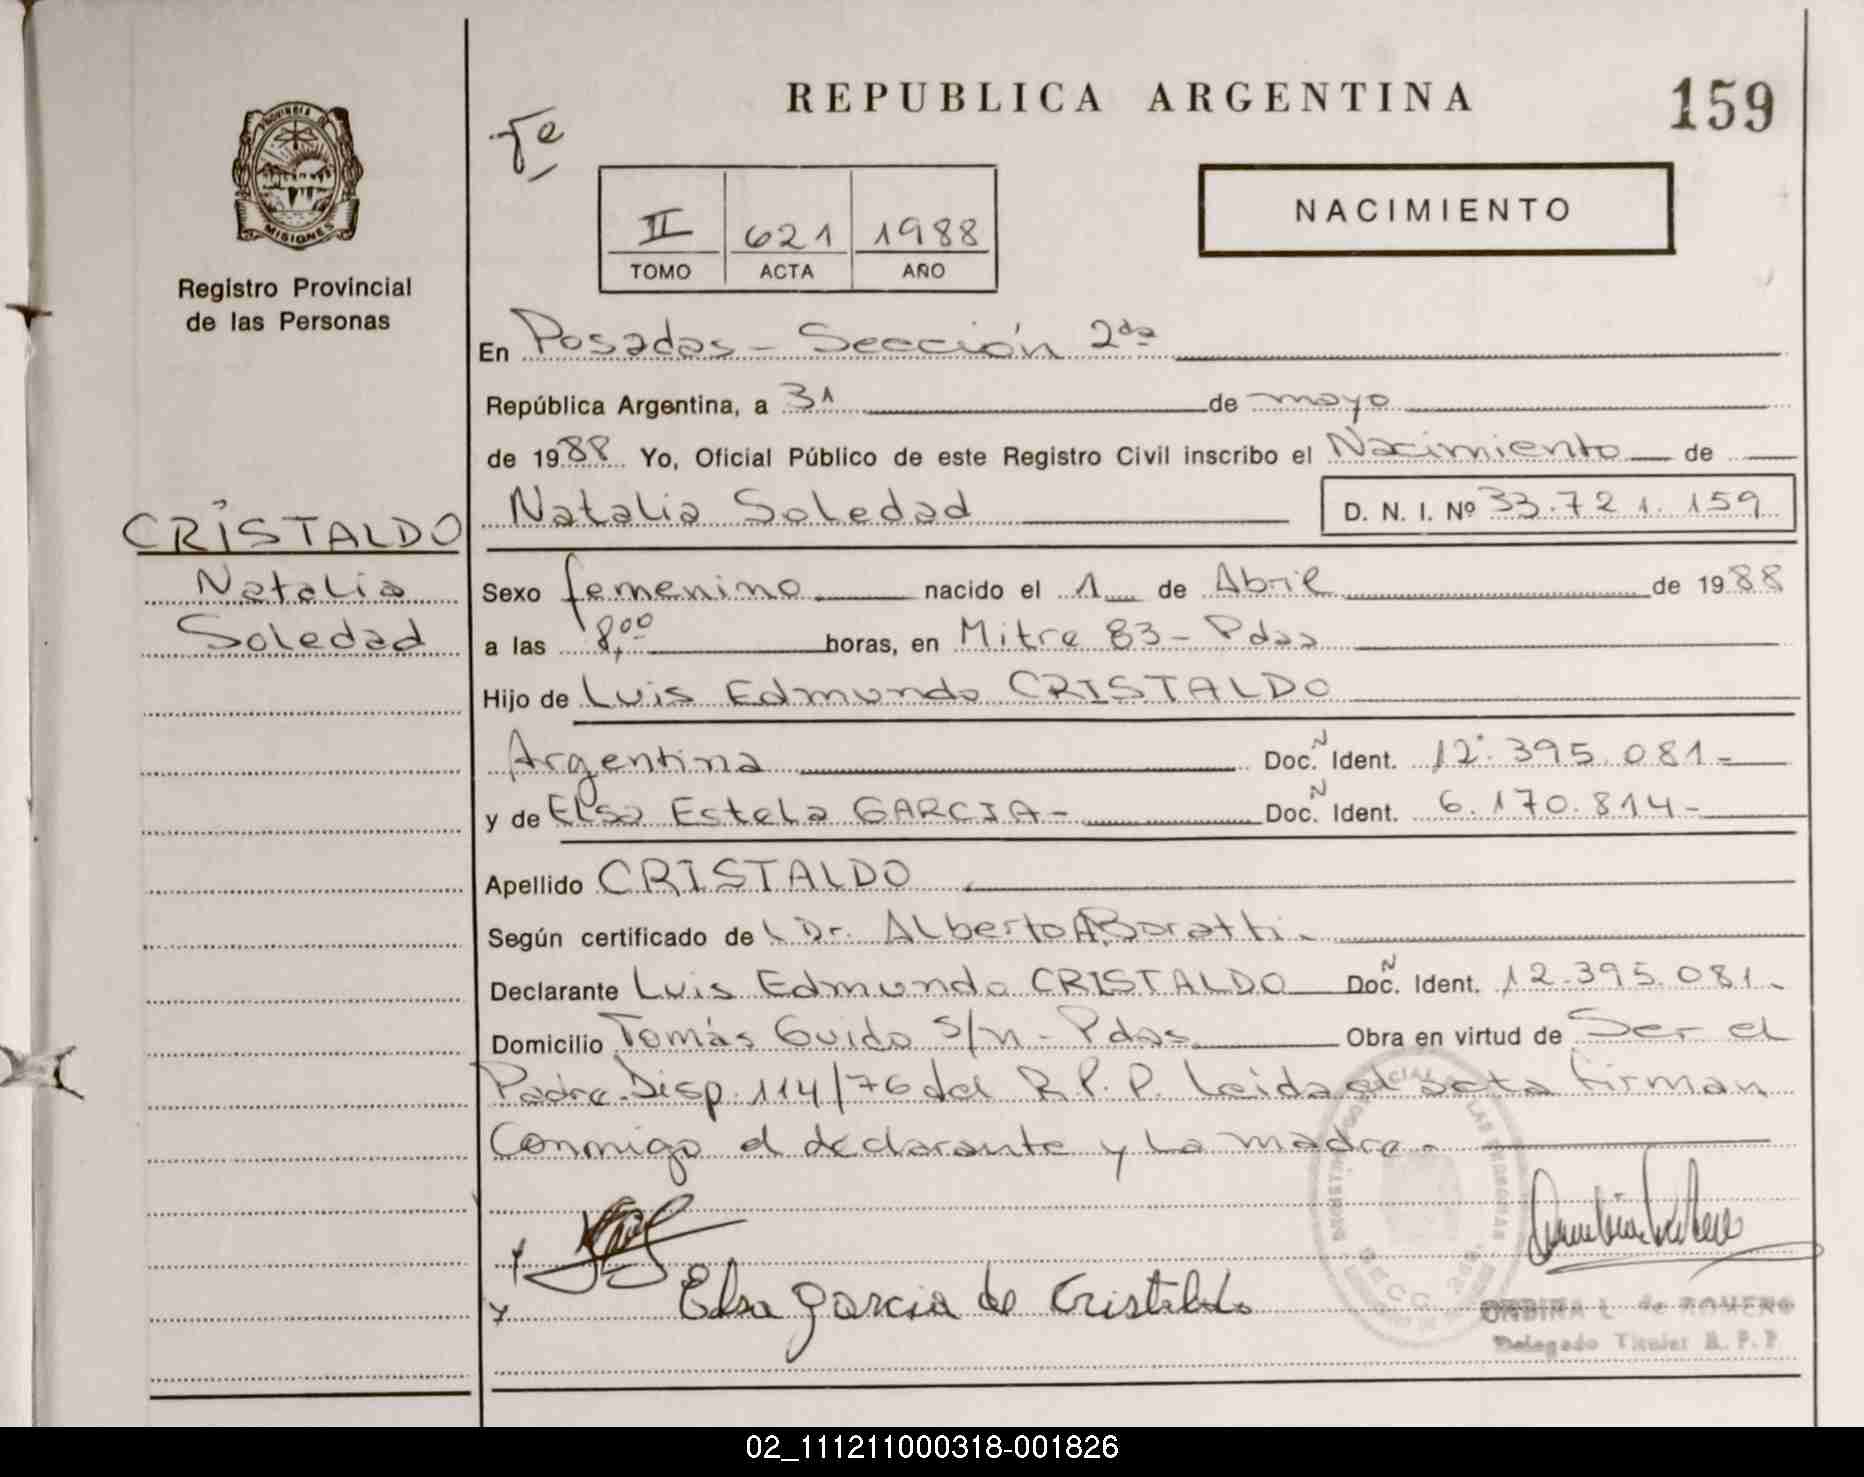 REPUBLICA ARGENTINA
159
PROVINCIA DE
MISIONES
Registro Provincial
de las Personas
II 621 1988
TOMO ACTA AÑO
NACIMIENTO
En Posadas - Sección 2da
República Argentina, a 31 de mayo
de 1988 Yo, Oficial Público de este Registro Civil inscribo el Nacimiento de
Natalia Soledad D. N. I. Nº 33.721.159
CRISTALDO
Natalia
Soledad
Sexo femenino nacido el 1 de Abril de 1988
a las 8,00 horas, en Mitre 83 - Pdas
Hijo de Luis Edmundo CRISTALDO
Argentina Doc. N Ident. 12.395.081-
y de Elsa Estela GARCIA- Doc. N Ident. 6.170.814-
Apellido CRISTALDO
Según certificado de l Dr. Alberto A. Boratti.
Declarante Luis Edmundo CRISTALDO Doc. N Ident. 12.395.081.
Domicilio Tomás Guido S/n - Pdas Obra en virtud de Ser el
Padre. Disp. 114/76 del R.P.P. Leida el acta firman
Conmigo el declarante y la madre.
Elsa Garcia de Cristaldo
L. de ROMERO
Delegado Titular R. P. P.
02_111211000318-001826